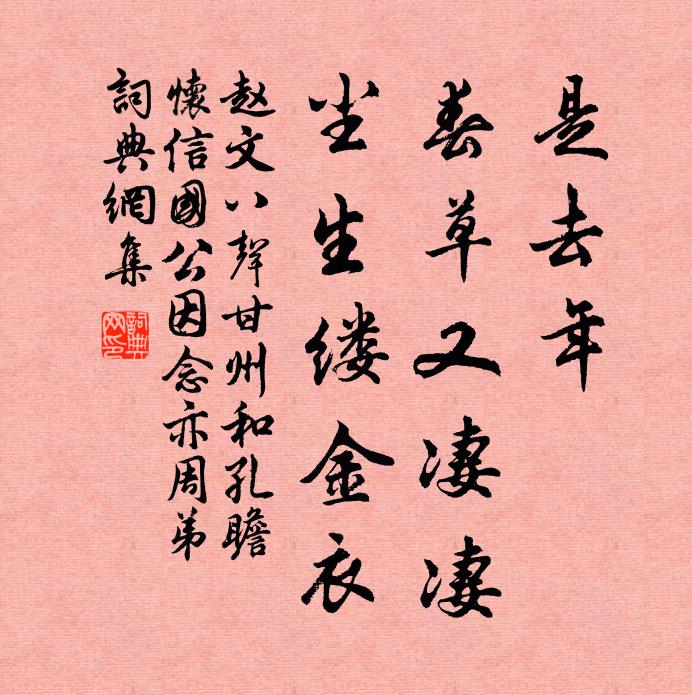 是去年
春草又凄凄
尘生缕金衣
赵文八聲甘州和孔瞻
懷信國公因念亦周弟
詞典網集
詞典
网印